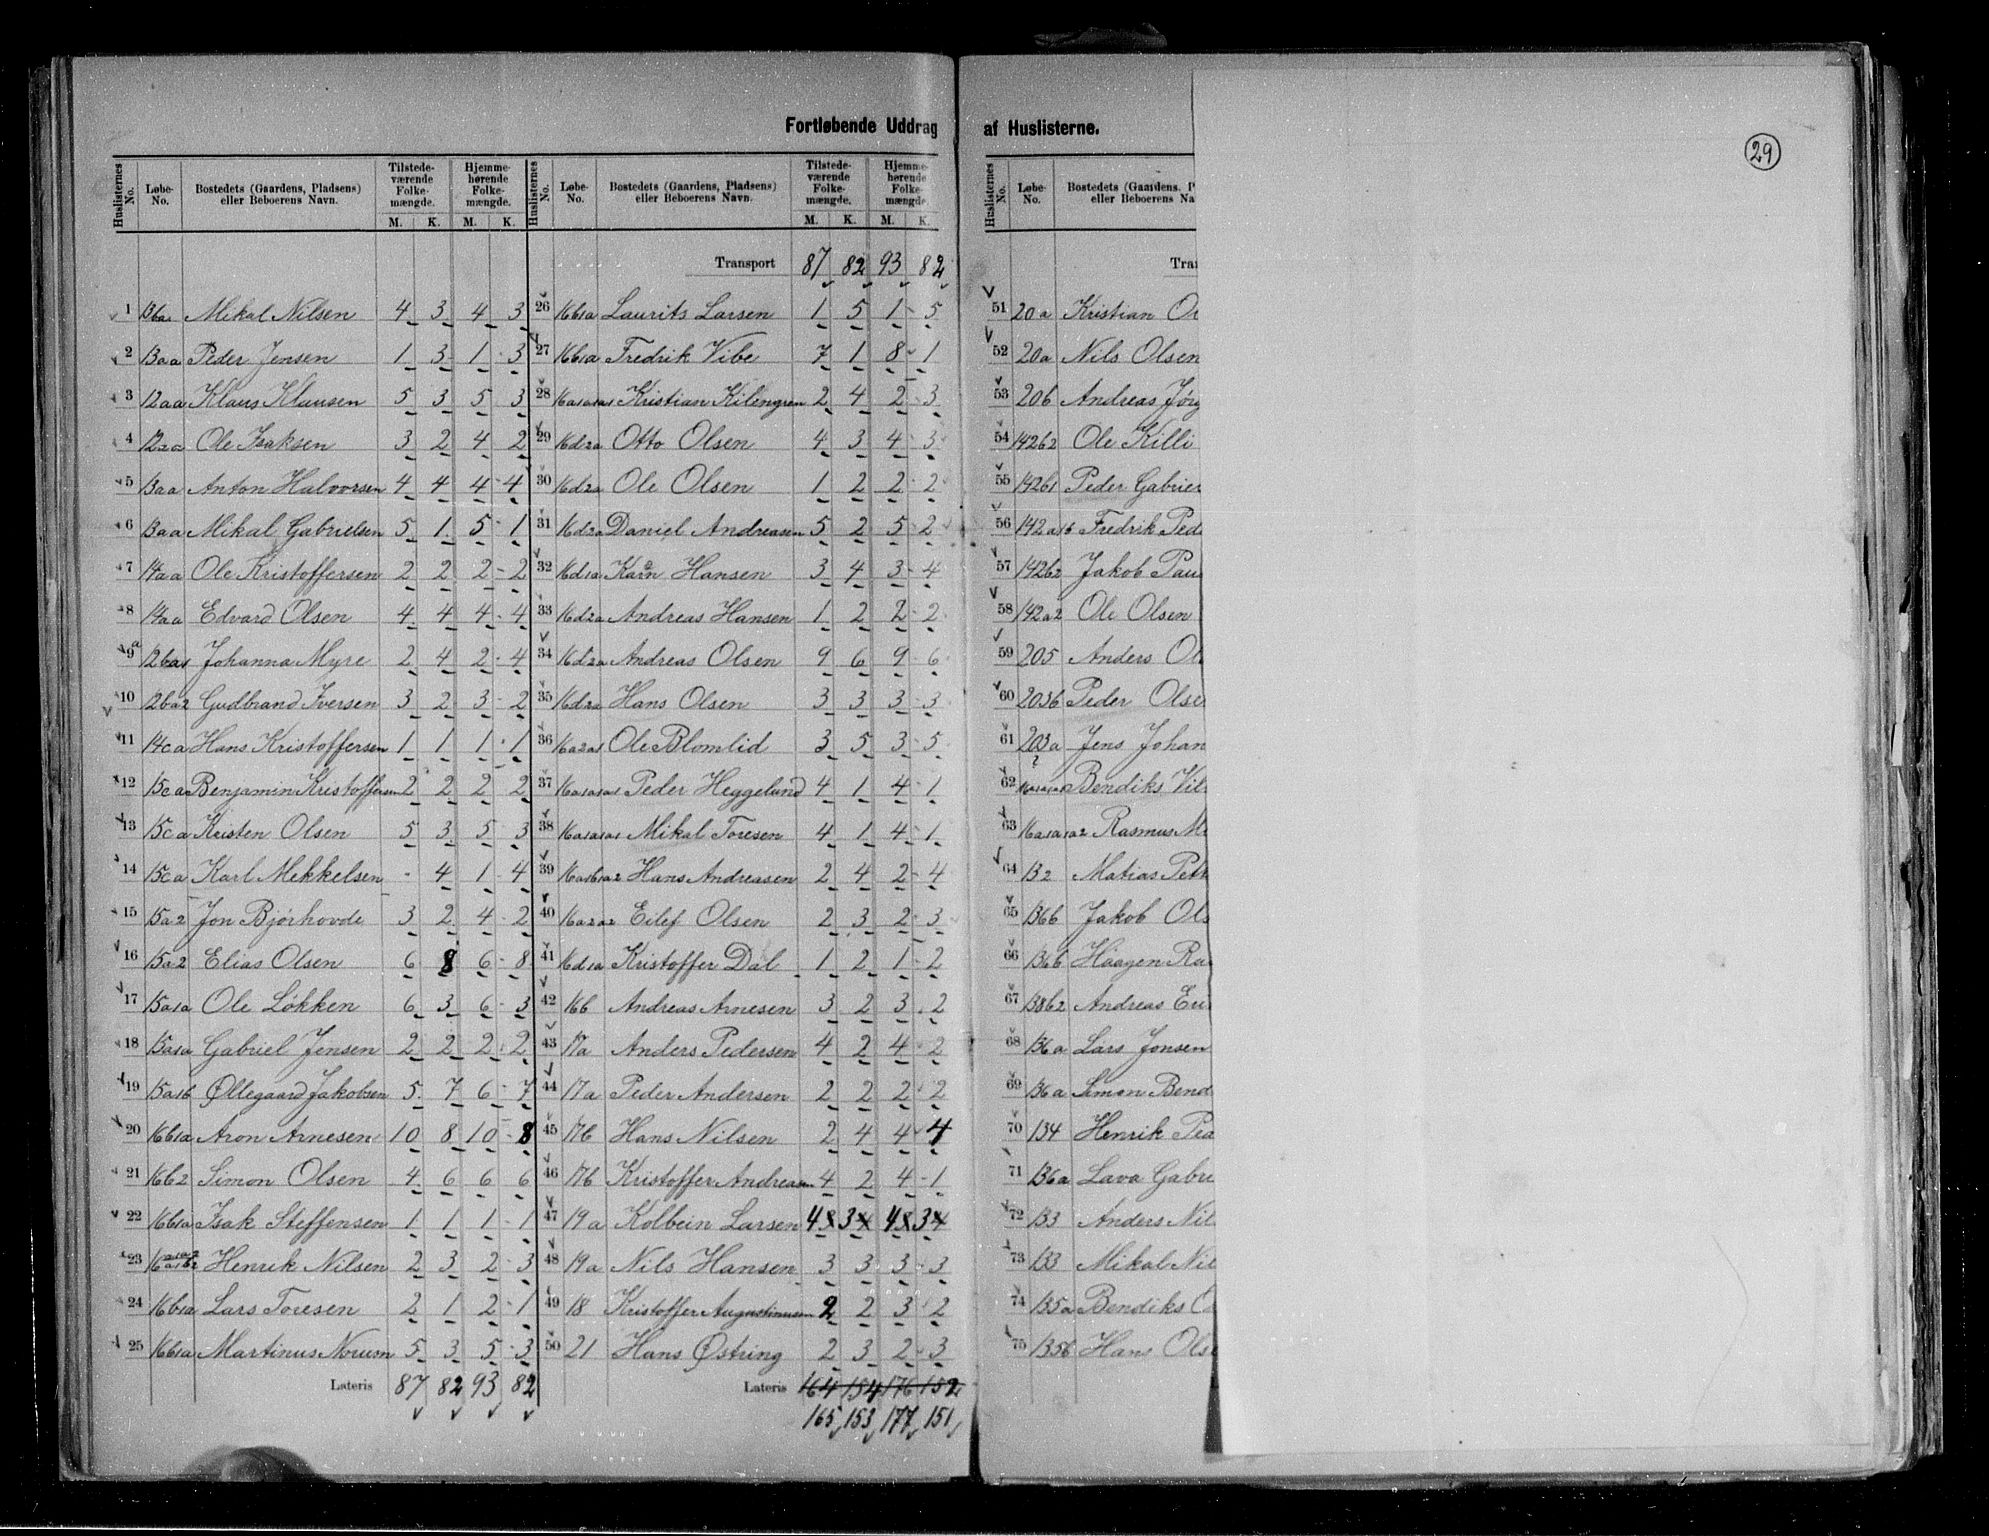 Fortløbende Uddrag
Huslisternes No. Løbe-No. Bostedets (Gaardens, Pladsens) eller Beboerens Navn. Tilstedeværende Folkemængde. M. K. Hjemmehørende Folkemængde. M. K.
1 Mikal Nilsen 4 3 4 3
2 13aa Peder Jensen 1 3 1 3
3 12aa Klaus Klausen 5 3 5 3
4 12aa Ole Isaksen 3 2 4 2
5 13aa Anton Halvorsen 4 4 4 4
6 13aa Mikal Gabrielsen 5 1 5 1
7 14aa Ole Kristoffersen 2 2 2 2
8 14aa Edvard Olsen 4 4 4 4
9a 12ba1 Johanna Myre 2 4 2 4
10 12ba2 Gudbrand Iversen 3 2 3 2
11 14ca Hans Kristoffersen 1 1 1 1
12 15ca Benjamin Kristoffersen 2 2 2 2
13 15ca Kristen Olsen 5 3 5 3
14 15ca Karl Mekkelsen - 4 1 4
15 15a2 Jon Bjørhovde 3 2 4 2
16 15a2 Elias Olsen 6 8 6 8
17 15a1a Ole Løkken 6 3 6 3
18 15a1a Gabriel Jensen 2 2 2 2
19 15a1b Øllegaard Jakobsen 5 7 6 7
20 16b1a Aron Arnesen 10 8 10 8
21 16b2 Simon Olsen 4 6 6 6
22 16b1a Isak Steffensen 1 1 1 1
23 Henrik Nilsen 2 3 2 3
24 16b1a Lars Toresen 2 1 2 1
25 16b1a Martinus Noruen 5 3 5 3
Lateris 87 82 93 82
Huslisternes No. Løbe-No. Bostedets (Gaardens, Pladsens) eller Beboerens Navn. Tilstedeværende Folkemængde. M. K. Hjemmehørende Folkemængde M. K.
Transport 87 82 93 82
26 16b1a Laurits Larsen 1 5 1 5
27 16b1a Fredrik Vibe 7 1 8 1
28 16a1a1a1 Kristian Kilengren 2 4 2 3
29 16d2a Otto Olsen 4 3 4 3
30 16d2a Ole Olsen 1 2 2 2
31 16d2a Daniel Andreasen 5 2 5 2
32 16d1a Hansen 3 4 3 4
33 16d2a Andreas Hansen 1 2 2 2
34 16d2a Andreas Olsen 9 6 9 6
35 16d2a Hans Olsen 3 3 3 3
36 16a2a1 Ole Blomlid 3 5 3 5
37 16a1a1a1 Peder Heggelund 4 1 4 1
38 16a1a1a1 Mikal Toresen 4 1 4 1
39 16a1b1a2 Hans Andreasen 2 4 2 4
40 16a2a2 Eilef Olsen 2 3 2 3
41 16d1a Kristoffer Dal 1 2 1 2
42 16b Andreas Arnesen 3 2 3 2
43 17a Anders Pedersen 4 2 4 2
44 17a Peder Andersen 2 2 2 2
45 17b Hans Nilsen 2 4 4 4
46 17b Kristoffer Andreasen 4 2 4 1
47 19a Kolbein Larsen 4 3 4 3
48 19a Nils Hansen 3 3 3 3
49 18 Kristoffer Augustinusen 2 2 3 2
50 21 Hans Østring 2 3 2 3
Lateris 164 154 176 152
165 153 177 151
af Huslisterne.
29
Huslisternes No. Løbe-No. Bostedets (Gaardens, P eller Beboerens Na
Tra
51 20a Kristian
52 20a Nils Olsen
53 20b Andreas Jørg
54 142b2 Ole Killi
55 142b1 Peder Gabrie
56 142a1b Fredrik Ped
57 142b2 Jakob Pau
58 142a2 Ole Olsen
59 205 Anders Ol
60 203b Peder Olse
61 203a Jens Johan
62 Bendiks Vil
63 16a1a1a2 Rasmus M
64 132 Matias Pet
65 136b Jakob Ols
66 136b Haagen Ra
67 138b2 Andreas Eri
68 136a Lars Jonsen
69 136a Simon Bend
70 134 Henrik Pe
71 136a Lava Gabri
72 133 Anders Nil
73 133 Mikal Nil
74 135a Bendiks
75 135b Hans Ols